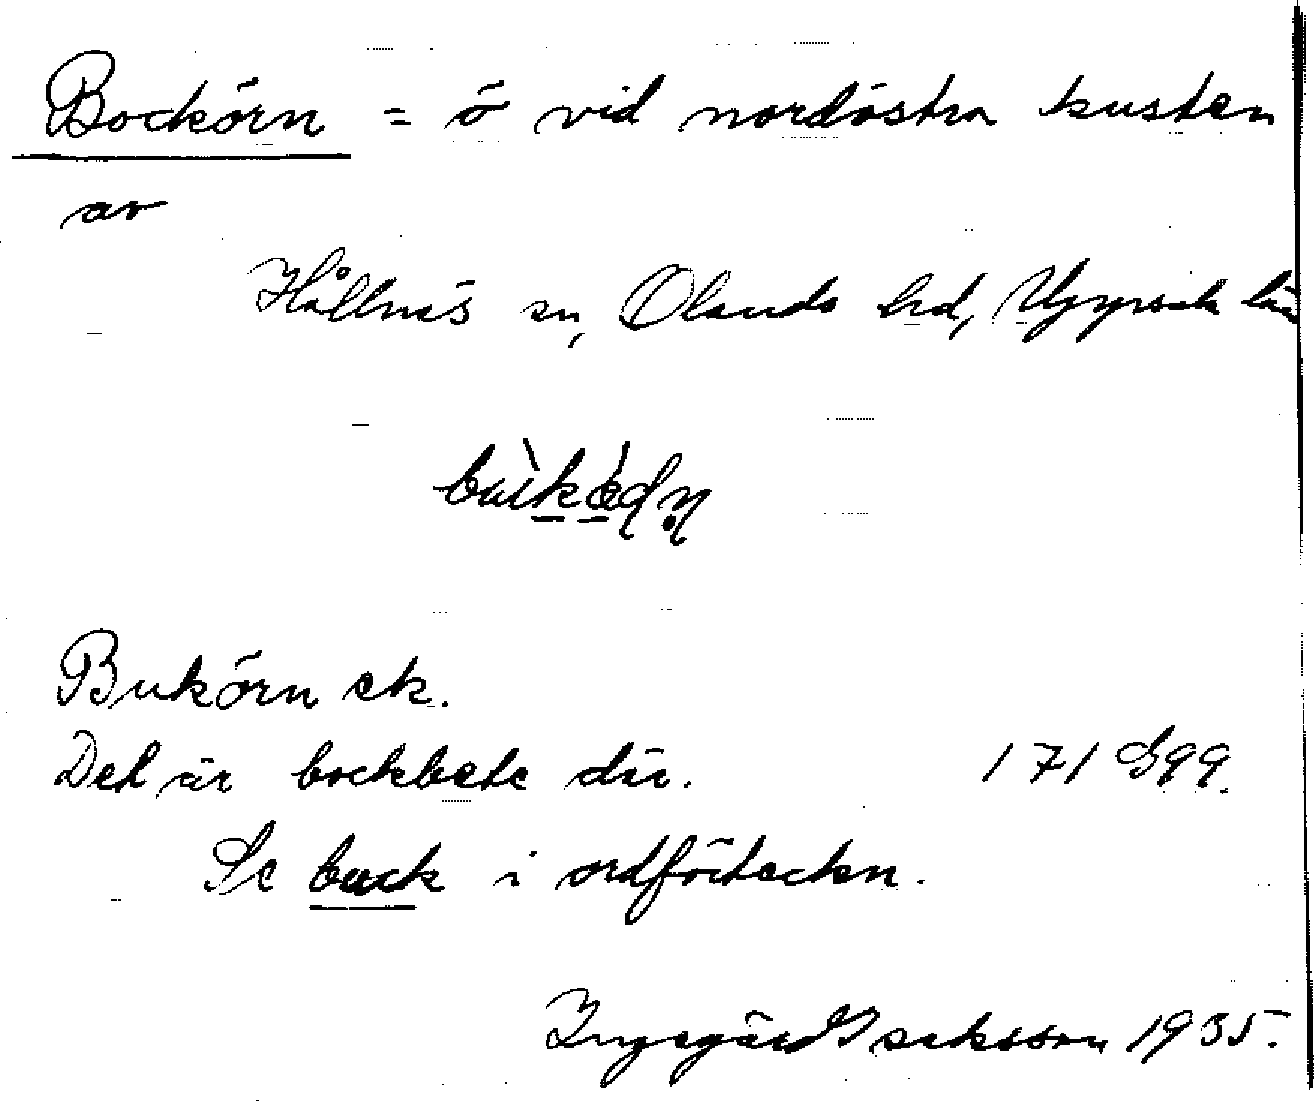 Bockörn = ö vid nordöstra kusten
av
Hållnäs sn, Olands hd, Uppsala län
Bukörn ek.
Det är bockbete där. 171 G99.
Se buck i ordförteckn.
Ingegärd Isaksson 1935.